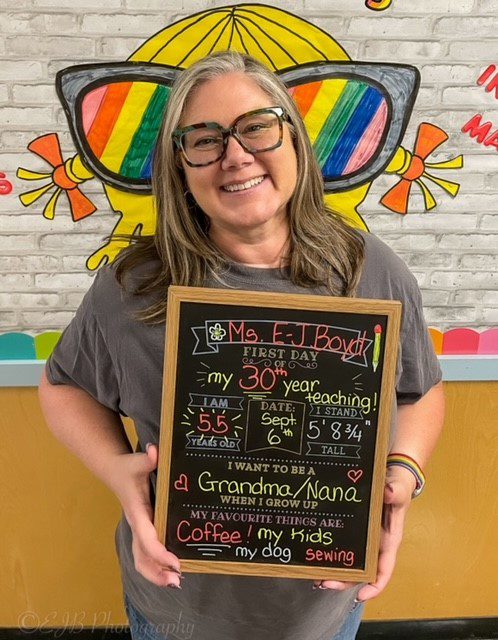 Ms. E-J Boyd
FIRST DAY
OF
my 30th year
teaching!
I AM
55
YEARS OLD
DATE:
Sept.
6th
I STAND
5' 8 3/4"
TALL
I WANT TO BE A
Grandma/Nana
WHEN I GROW UP
MY FAVOURITE THINGS ARE:
Coffee! my kids
my dog sewing
©EJB Photography